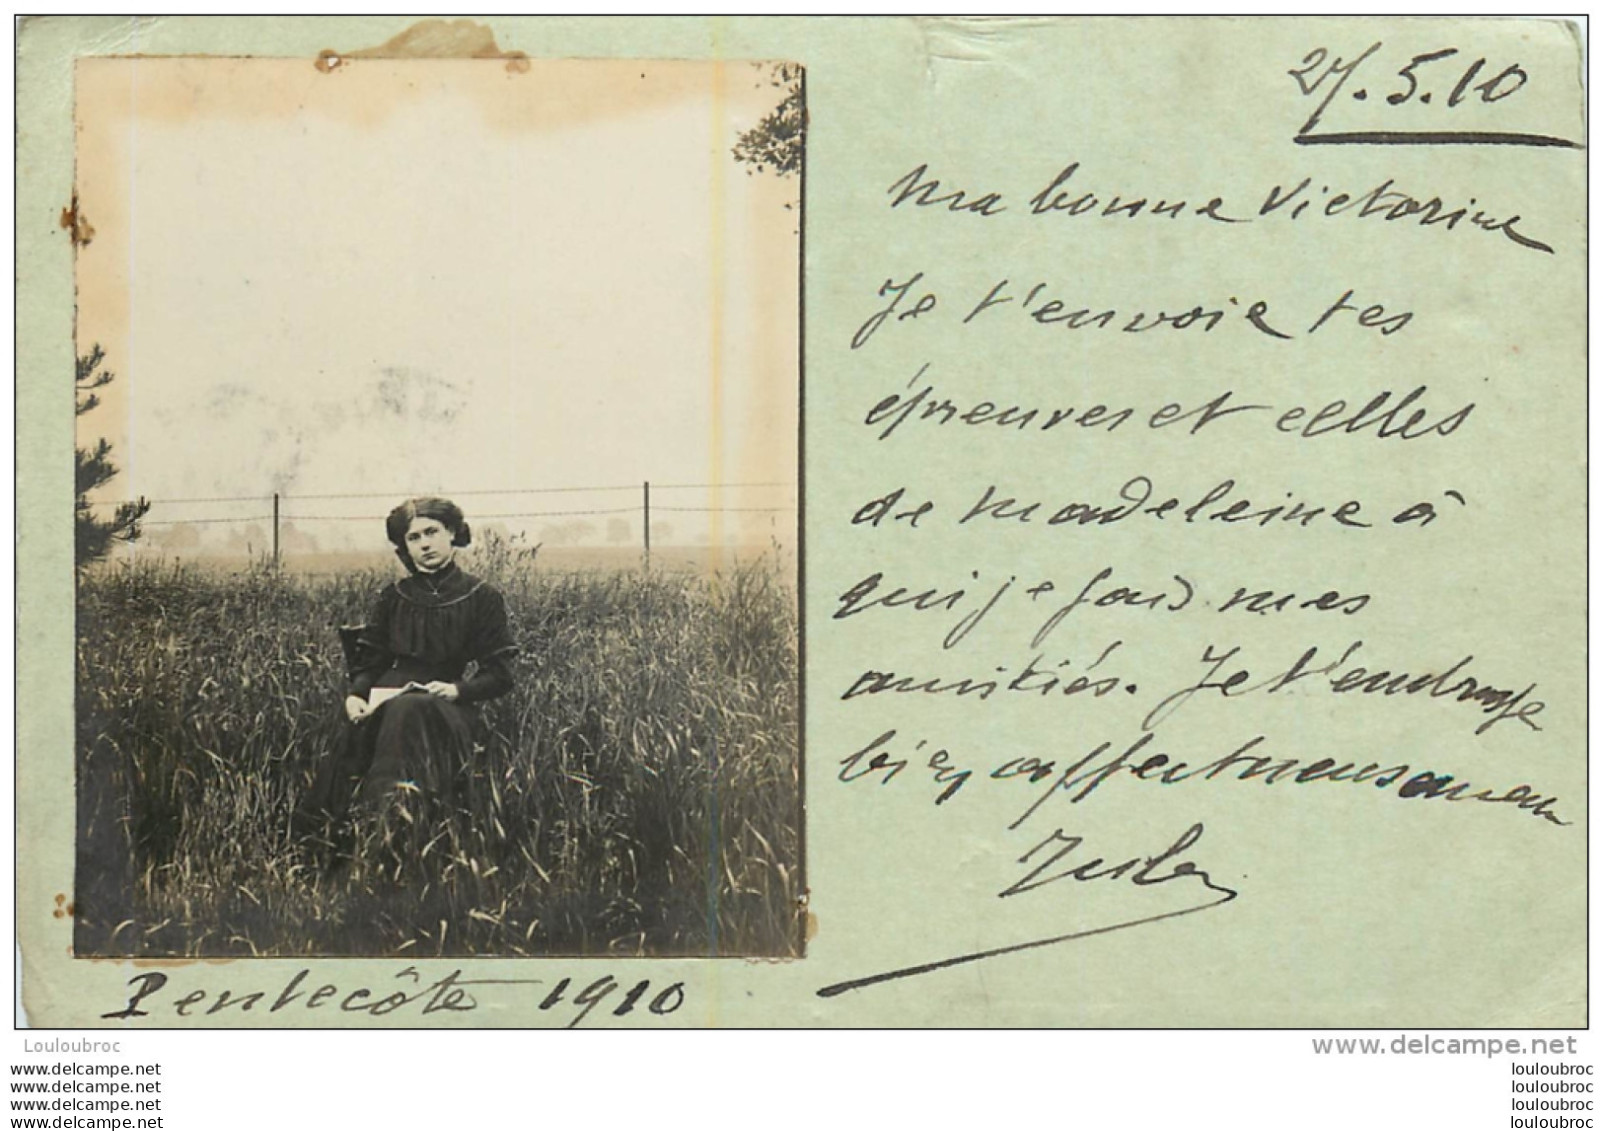 27.5.10
Ma bonne Victorine
Je t'envoie tes
épreuves et celles
de Madeleine à
qui je fais mes
amitiés. Je t'embrasse
bien affectueusement
Pentecôte 1910
Louloubroc
www.delcampe.net
www.delcampe.net
www.delcampe.net
www.delcampe.net
www.delcampe.net
louloubroc
louloubroc
louloubroc
louloubroc